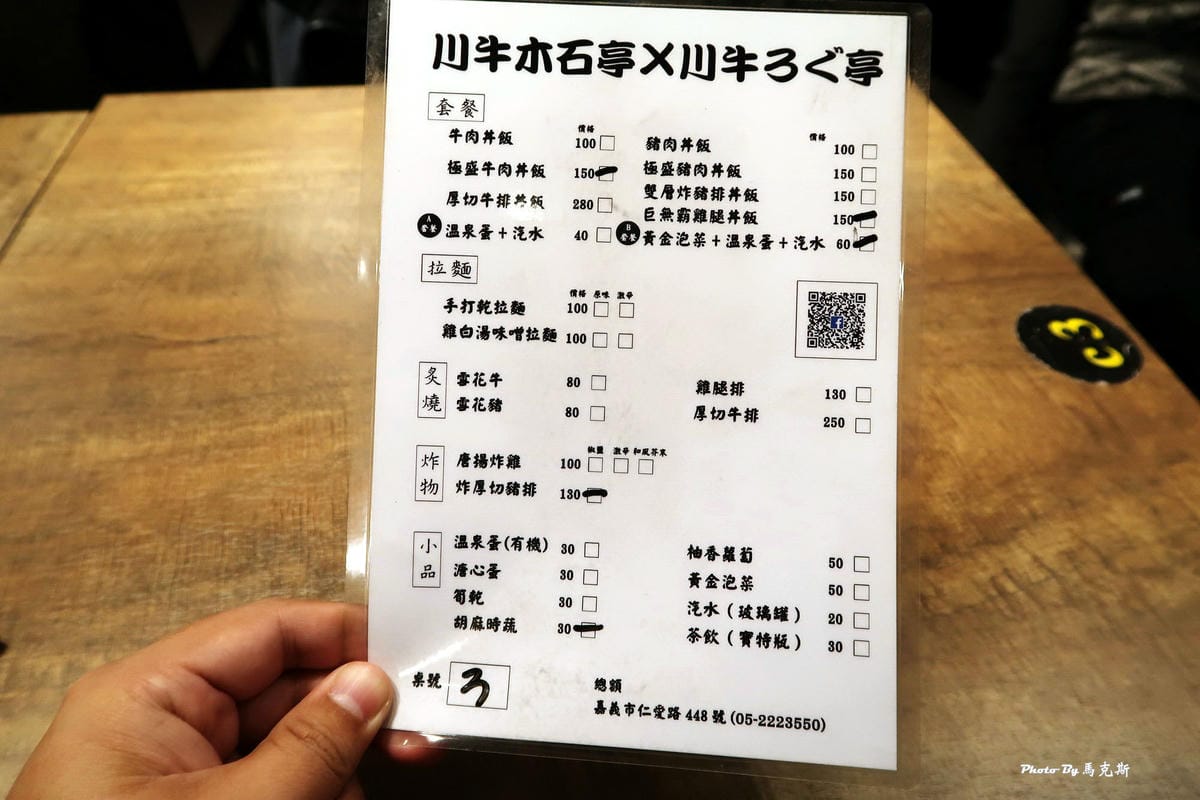 川牛木石亭X川牛ろぐ亭
套餐
價格
牛肉丼飯 100
極盛牛肉丼飯 150
厚切牛排丼飯 280
A套餐 溫泉蛋+汽水 40
價格
豬肉丼飯 100
極盛豬肉丼飯 150
雙層炸豬排丼飯 150
巨無霸雞腿丼飯 150
B套餐 黃金泡菜+溫泉蛋+汽水 60
拉麵
價格 原味 激辛
手打乾拉麵 100
雞白湯味噌拉麵 100
炙燒
雪花牛 80
雪花豬 80
雞腿排 130
厚切牛排 250
炸物
椒鹽 激辛 和風芥末
唐揚炸雞 100
炸厚切豬排 130
小品
溫泉蛋(有機) 30
溏心蛋 30
筍乾 30
胡麻時蔬 30
柚香蘿蔔 50
黃金泡菜 50
汽水(玻璃罐) 20
茶飲(寶特瓶) 30
桌號 3
總額
嘉義市仁愛路 448 號 (05-2223550)
3
Photo By 馬克斯